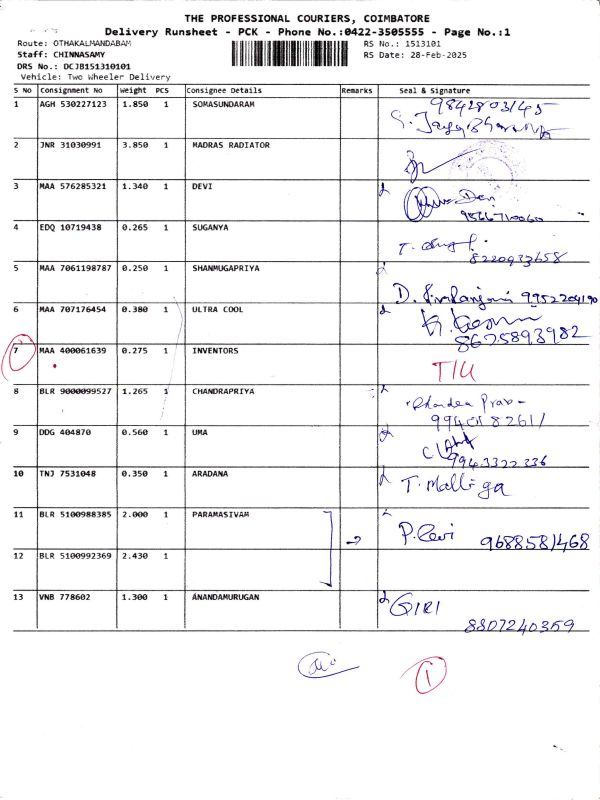 THE PROFESSIONAL COURIERS, COIMBATORE
Delivery Runsheet - PCK - Phone No.:0422-3505555 - Page No.:1
Route: OTHAKALMANDABAM RS No.: 1513101
Staff: CHINNASAMY RS Date: 28-Feb-2025
DRS No.: DCJB151310101
Vehicle: Two Wheeler Delivery
S No Consignment No Weight PCS Consignee Details Remarks Seal & Signature
1 AGH 530227123 1.850 1 SOMASUNDARAM 9842803145
2 JNR 31030991 3.850 1 MADRAS RADIATOR
3 MAA 576285321 1.340 1 DEVI Devi
9566710060
4 EDQ 10719438 0.265 1 SUGANYA
8220933658
5 MAA 7061198787 0.250 1 SHANMUGAPRIYA
D. 9952204190
6 MAA 707176454 0.380 1 ULTRA COOL
8675893982
7 MAA 400061639 0.275 1 INVENTORS
8 BLR 9000099527 1.265 1 CHANDRAPRIYA
9940182611
9 DDG 404870 0.560 1 UMA
9943322336
10 TNJ 7531048 0.350 1 ARADANA T. Malliga
11 BLR 5100988385 2.000 1 PARAMASIVAM P. Devi 9688581468
12 BLR 5100992369 2.430 1
13 VNB 778602 1.300 1 ANANDAMURUGAN GIRI
8807240359
1